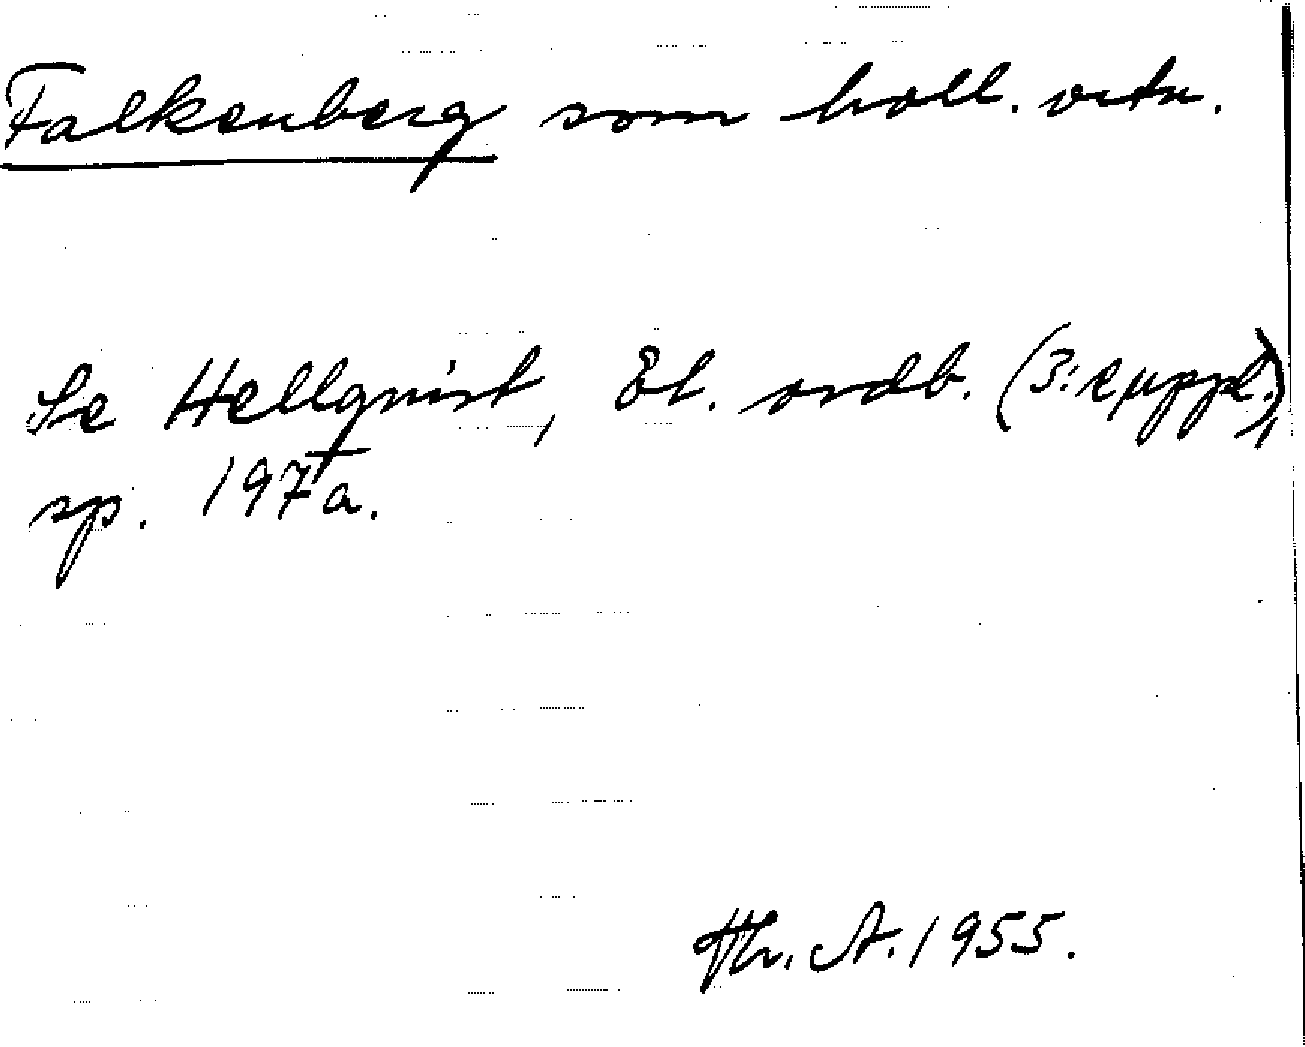 Falkenberg som holl. ortn.
Se Hellquist, Et. ordb. (3: e uppl.),
sp. 197a.
Th. A. 1955.